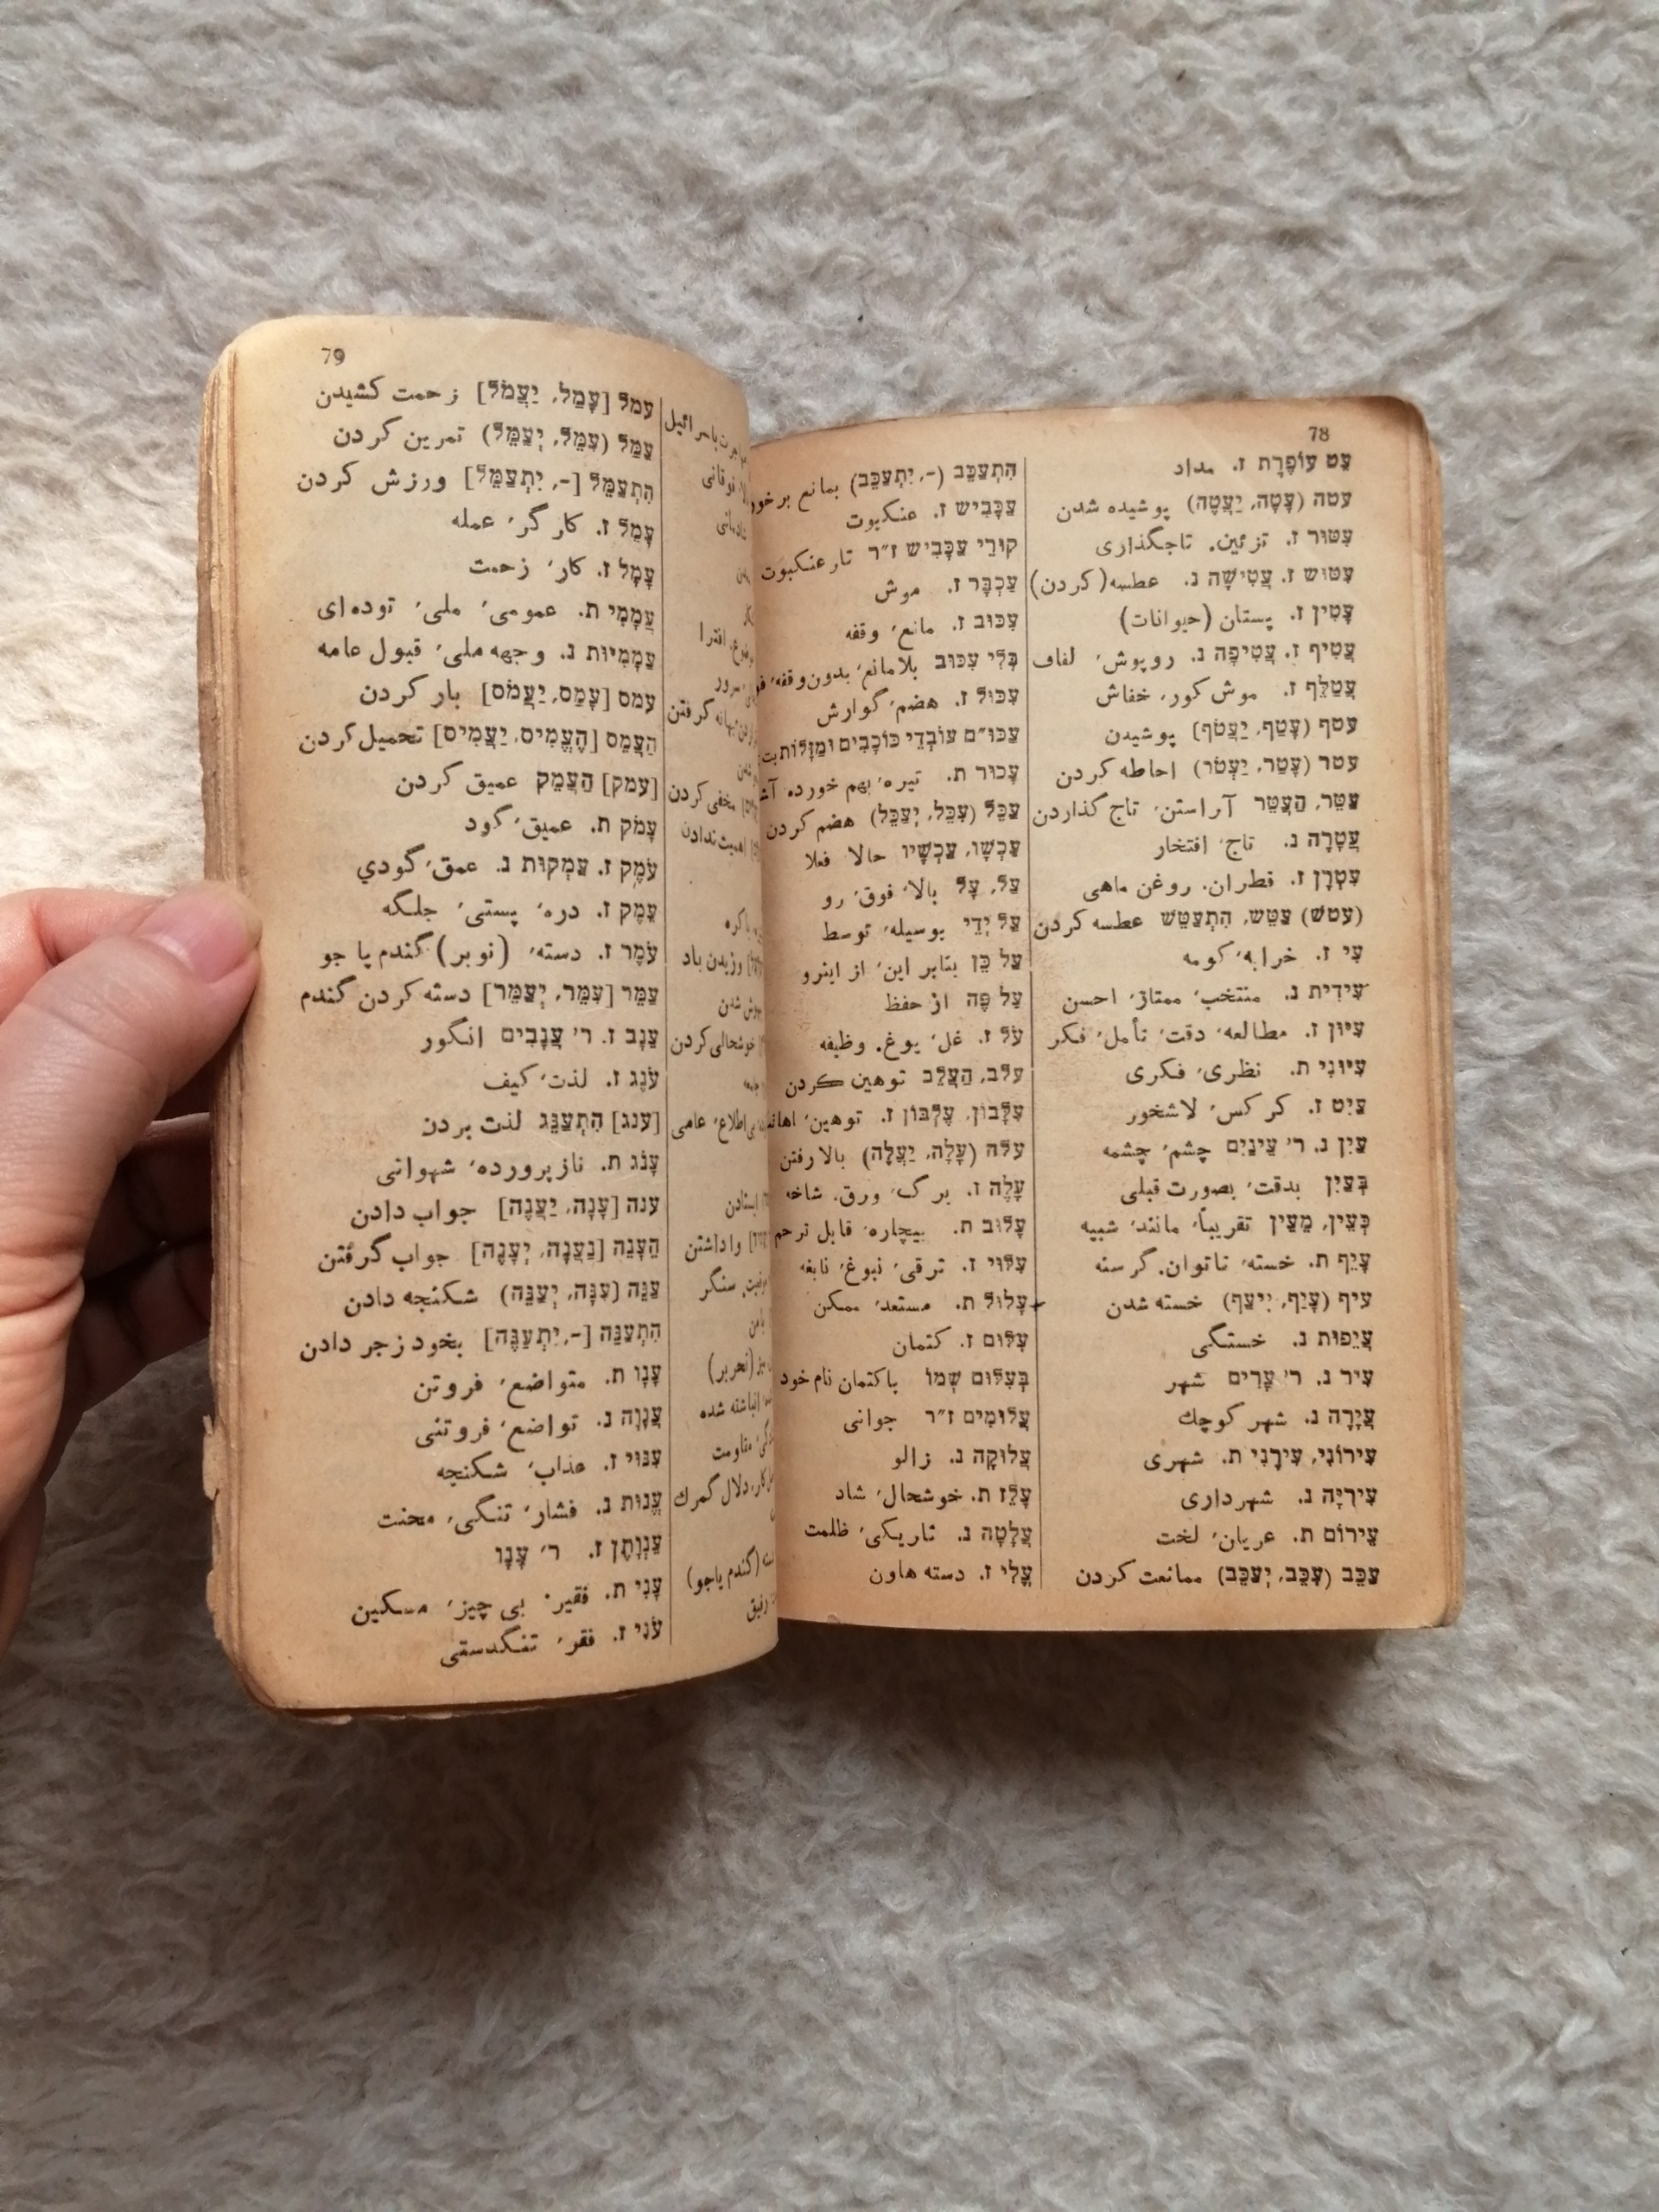 78
עֵט עוֹפֶרֶת ז. مداد
עטה (עָטָה, יַעֲטֶה) پوشیده شدن
עִטוּר ז. تزئین. تاجگذاری
עִטוּשׁ ז. עֲטִישָׁה נ. عطسه(کردن)
עָטִין ז. پستان (حیوانات)
עָטִיף ז. עֲטִיפָה נ. روپوش، لفاف
עֲטַלֵּף ז. موش کور، خفاش
עטף (עָטַף, יַעֲטֹף) پوشیدن
עטר (עָטַר, יַעְטֹר) احاطه کردن
עִטֵּר, הַעֲטֵר آراستن، تاج گذاردن
עֲטָרָה נ. تاج، افتخار
עִטְרָן ז. قطران. روغن ماهی
(עטשׁ) עִטֵּשׁ, הִתְעַטֵּשׁ عطسه کردن
עִי ז. خرابه، کومه
עִידִית נ. منتخب، ممتاز، احسن
עִיּוּן ז. مطالعه، دقت، تأمل، فکر
עִיּוּנִי ת. نظری، فکری
עַיִט ז. کرکس، لاشخور
עַיִן נ. ר׳ עֵינַיִם چشم، چشمه
בְּעַיִן بدقت، بصورت قبلی
כְּעֵין, מֵעֵין تقریباً، مانند، شبیه
עָיֵף ת. خسته، ناتوان. گرسنه
עיף (עָיֵף, יִיעַף) خسته شدن
עֲיֵפוּת נ. خستگی
עִיר נ. ר׳ עָרִים شهر
עֲיָרָה נ. شهر کوچك
עִירוֹנִי, עִירָנִי ת. شهری
עִירִיָּה נ. شهرداری
עֵירוֹם ת. عریان، لخت
עִכֵּב (עִכֵּב, יְעַכֵּב) ممانعت کردن
הִתְעַכֵּב (-, יִתְעַכֵּב) بمانع
עַכָּבִישׁ ז. عنکبوت
קוּרֵי עַכָּבִישׁ ז״ר تارعنکبوت
עַכְבָּר ז. موش
עִכּוּב ז. مانع، وقفه
בְּלִי עִכּוּב بلامانع، بدون وقفه،
עִכּוּל ז. هضم، گوارش
עַכּוּ״ם עוֹבְדֵי כּוֹכָבִים וּמַזָּלוֹת
עָכוּר ת. تیره، بهم خورده
עִכֵּל (עִכֵּל, יְעַכֵּל) هضم کردن
עַכְשָׁו, עַכְשָׁיו حالا فعلا
עַל, עָל بالا، فوق، رو
עַל יְדֵי بوسیله، توسط
עַל כֵּן بنابر این، از اینرو
עַל פֶּה از حفظ
עֹל ז. غل، یوغ. وظیفه
עלב, הַעֲלֵב توهین کردن
עִלָּבוֹן, עֶלְבּוֹן ז. توهین،
עלה (עָלָה, יַעֲלֶה) بالارفتن
עָלֶה ז. برگ، ورق. شاخه
עָלוּב ת. بیچاره، قابل ترحم
עִלּוּי ז. ترقی، نبوغ، نابغه
עָלוּל ת. مستعد، ممکن
עִלּוּם ז. کتمان
בְּעִלּוּם שְׁמוֹ باکتمان نام خود
עֲלוּמִים ז״ר جوانی
עֲלוּקָה נ. زالو
עָלֵז ת. خوشحال، شاد
עֲלָטָה נ. تاریکی، ظلمت
עֱלִי ז. دسته هاون
79
مخفی کردن
اهمیت ندادن
وزیدن باد
خوشحالی کردن
بی اطلاع، عامی
ایستادن
واداشتن
سنگر
(تحریر)
انباشته شده
مقاومت
دلال گمرك
(گندم یاجو)
עמל [עָמַל, יַעֲמֹל] زحمت کشیدن
עִמֵּל (עִמֵּל, יְעַמֵּל) تمرین کردن
הִתְעַמֵּל [-, יִתְעַמֵּל] ورزش کردن
עָמֵל ז. کارگر، عمله
עָמָל ז. کار، زحمت
עֲמָמִי ת. عمومی، ملی، توده ای
עֲמָמִיּוּת נ. وجهه ملی، قبول عامه
עמס [עָמַס, יַעֲמֹס] بار کردن
הַעֲמֵס [הֶעֱמִיס, יַעֲמִיס] تحمیل کردن
[עמק] הַעֲמֵק عمیق کردن
עָמֹק ת. عمیق، گود
עֹמֶק ז. עַמְקוּת נ. عمق، گودي
עֵמֶק ז. دره، پستی، جلگه
עֹמֶר ז. دسته، (نوبر) گندم یا جو
עִמֵּר [עִמֵּר, יְעַמֵּר] دسته کردن گندم
עֵנָב ז. ר׳ עֲנָבִים انگور
עֹנֶג ז. لذت، کیف
[ענג] הִתְעַנֵּג لذت بردن
עָנֹג ת. نازپرورده، شهوانی
ענה [עָנָה, יַעֲנֶה] جواب دادن
הֵעָנֵה [נַעֲנָה, יֵעָנֶה] جواب گرفتن
עִנָּה (עִנָּה, יְעַנֶּה) شکنجه دادن
הִתְעַנָּה [-, יִתְעַנֶּה] بخود زجر دادن
עָנָו ת. متواضع، فروتن
עֲנָוָה נ. تواضع، فروتنی
עִנּוּי ז. عذاب، شکنجه
עֱנוּת נ. فشار، تنگی، محنت
עַנְוְתָן ז. ר׳ עָנָו
עָנִי ת. فقیر، بی چیز، مسکین
עֹנִי ז. فقر، تنگدستی